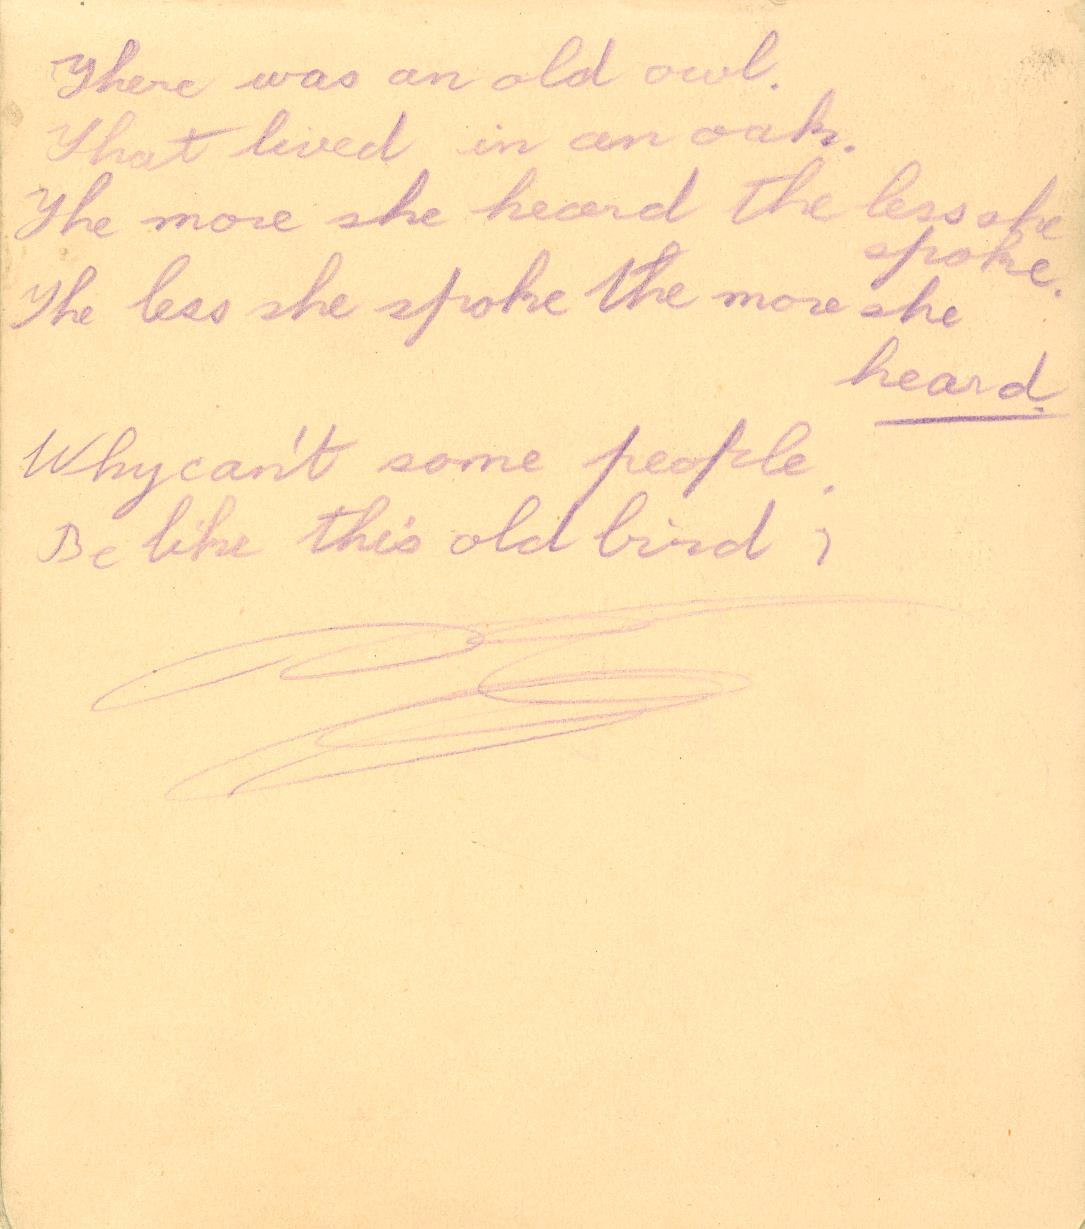 There was an old owl.
That lived in an oak.
The more she heard the less she
spoke.
The less she spoke the more she
heard.
Why can't some people.
Be like this old bird ?